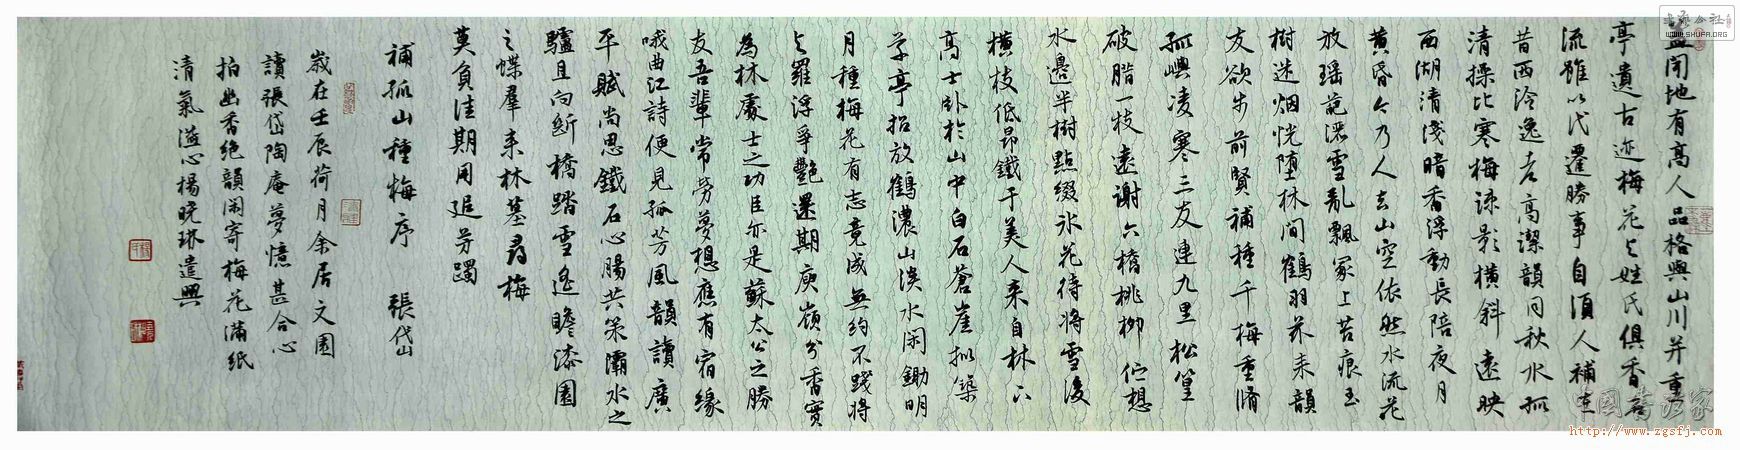 蓋闻地有高人品格與山川并重
亭遺古迹梅花与姓氏俱香名
流雖以代遷勝事自須人補在
昔西泠逸老高潔韻同秋水孤
清操比寒梅疎影橫斜遠映
西湖清淺暗香浮動長陪夜月
黄昏今乃人去山空依然水流花
放瑶葩洒雪亂飄冢上苔痕玉
樹迷烟恍堕林间鶴羽茲来韻
友欲步前賢補種千梅重脩
孤嶼凌寒三友連九里松篁
破腊一枝遠謝六橋桃柳伫想
水邊半樹點綴氷花待将雪後
橫枝低昂鐵干美人来自林下
髙士卧於山中白石蒼崖拟築
草亭招放鶴濃山淺水闲鋤明
月種梅花有志竟成無約不踐将
与羅浮爭艷還期庾嶺分香實
為林處士之功臣亦是蘇太公之勝
友吾輩常勞夢想應有宿緣
哦曲江詩便見孤芳風韻讀廣
平賦尚思鐵石心腸共策灞水之
驢且向斷橋踏雪遥瞻漆園
之蝶羣来林墓尋梅
莫負佳期用追芳躅
補孤山種梅序 張岱
歲在壬辰荷月余居文園
讀張岱陶庵夢憶甚合心
拍幽香绝韻闲寄梅花满纸
清氣溢心楊晓琳遣興
中國書法家
http://www.zgsfj.com
书法公社
WWW.SHUFA.ORG